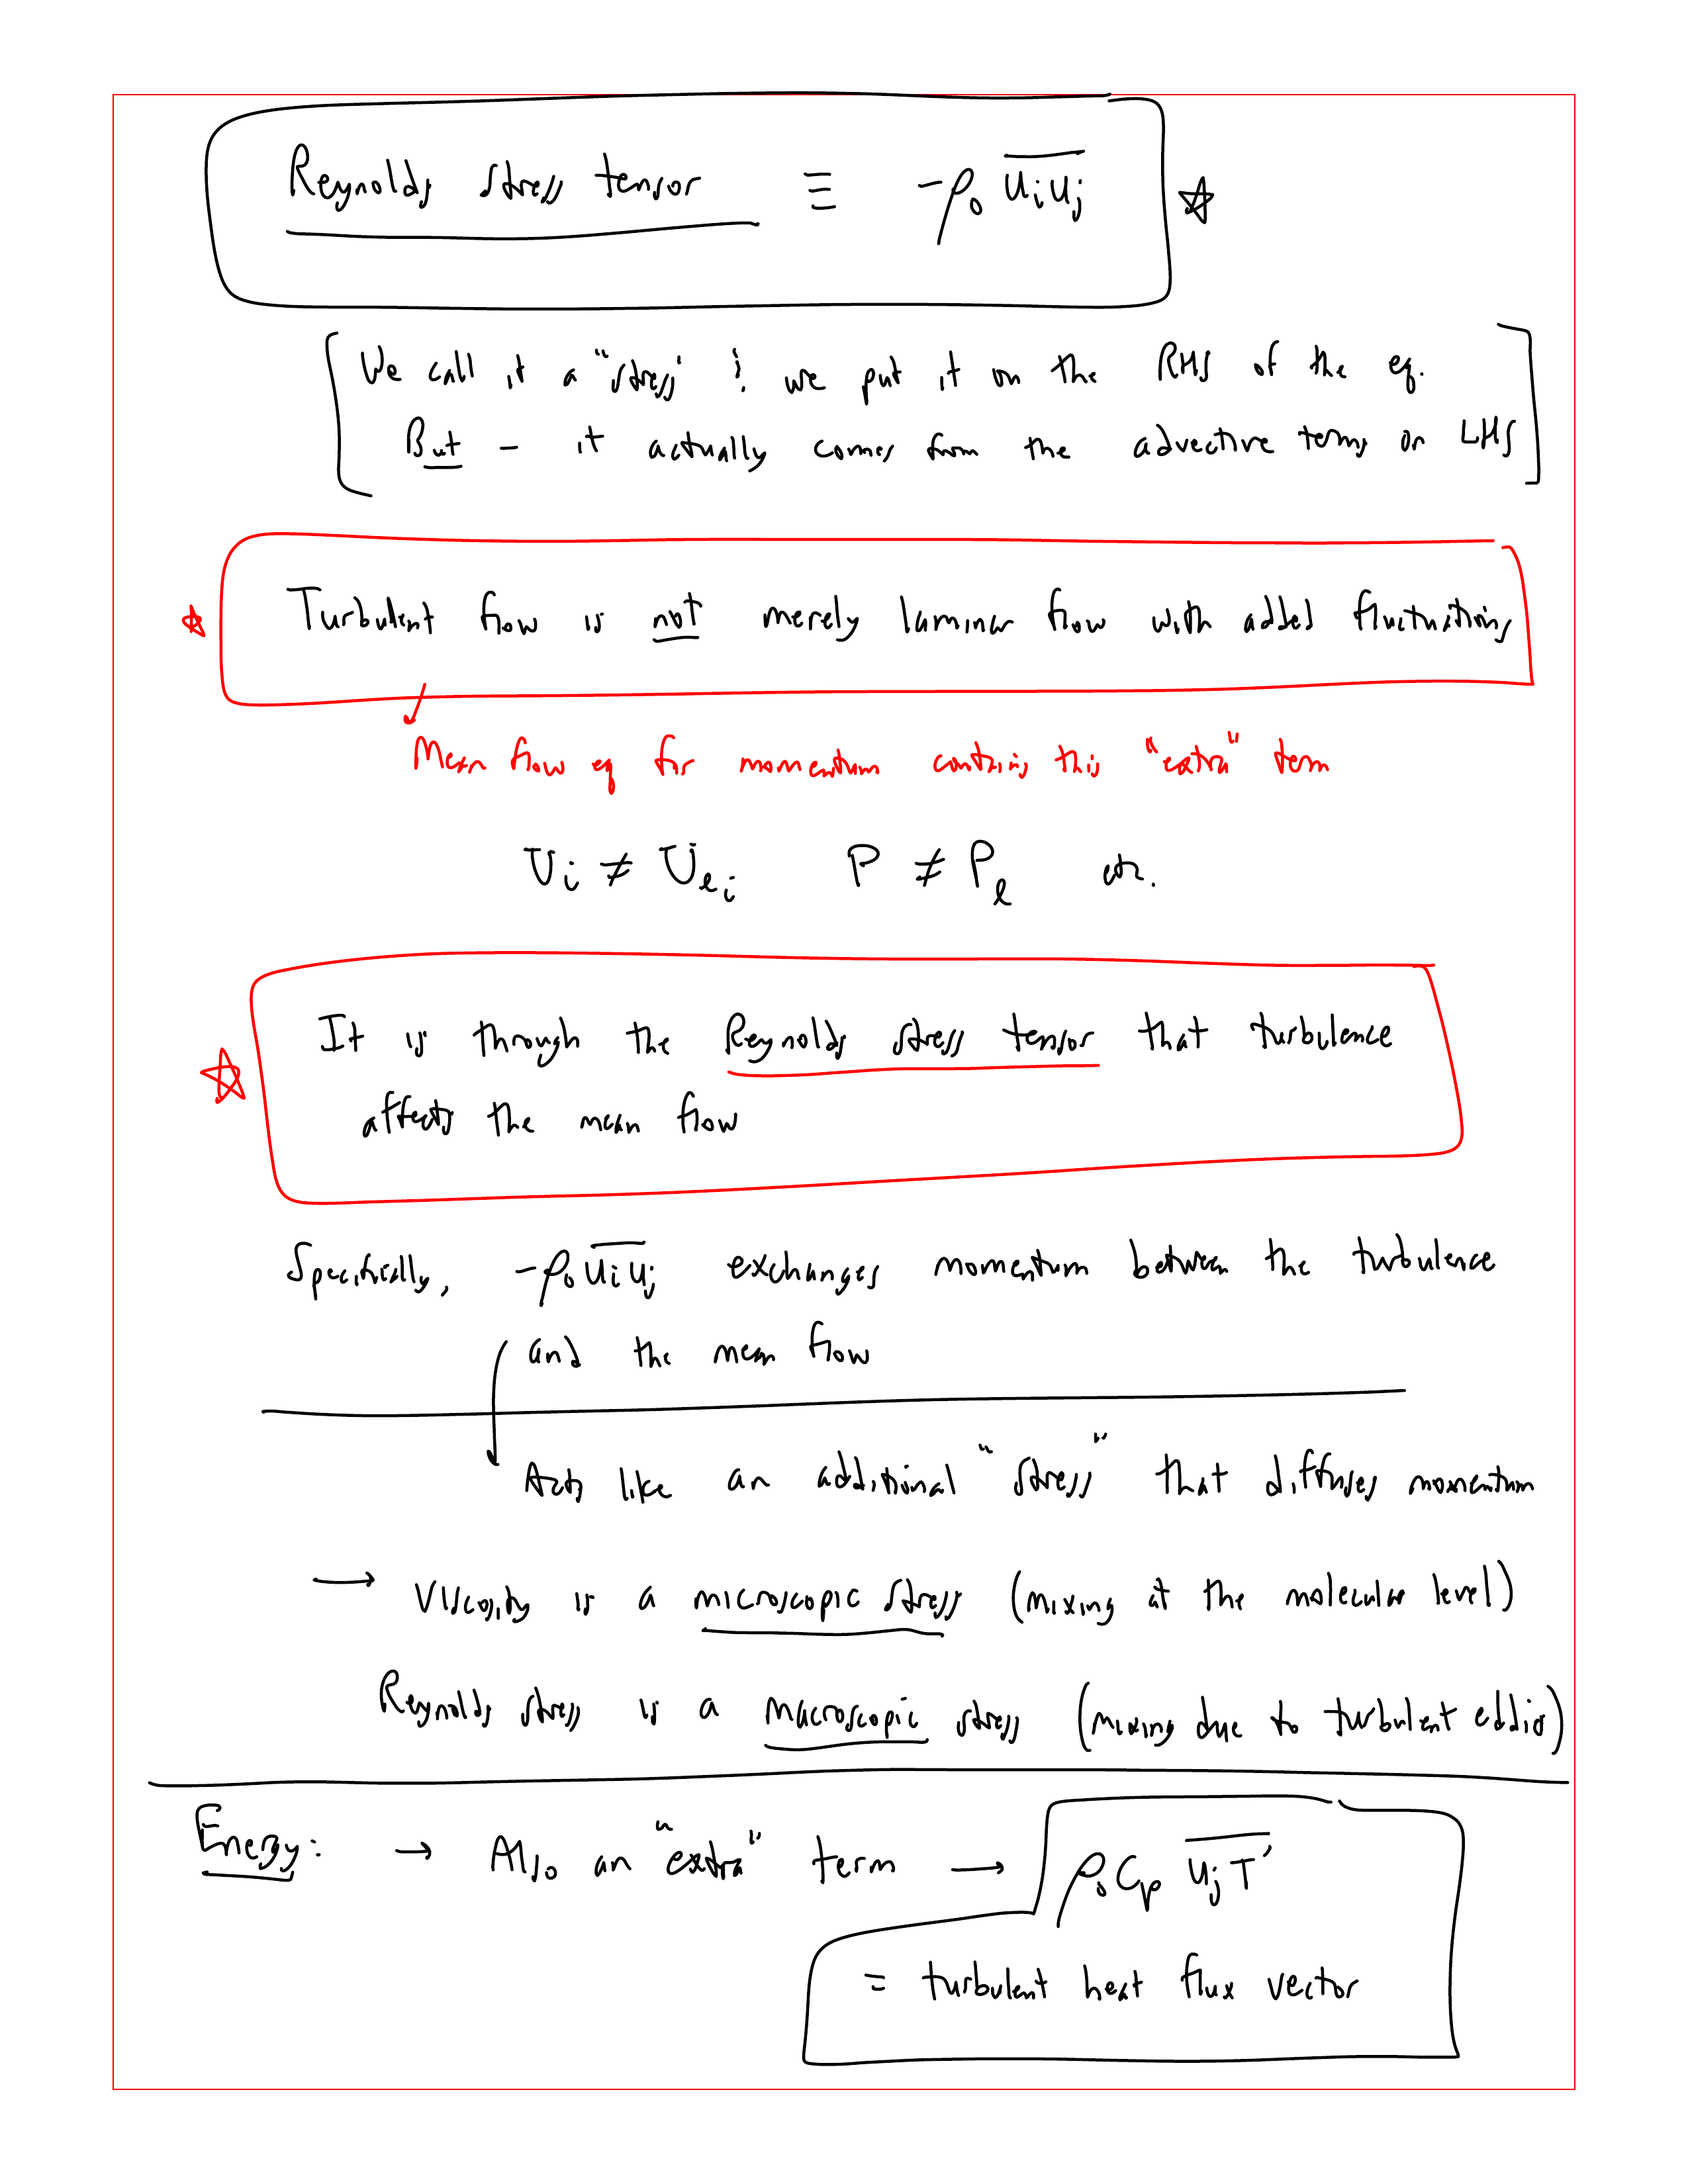 Reynolds stress tensor ≡ -ρ₀ \overline{u_i u_j} ☆
[We call it a "stress" & we put it on the RHS of the eq.
But - it actually comes from the advective terms on LHS]
☆ Turbulent flow is not merely laminar flow with added fluctuations
↓ Mean flow eq for momentum contains this "extra" term
U_i ≠ U_{ℓ_i}   P ≠ P_ℓ   etc.
☆ It is through the Reynolds stress tensor that turbulence
affects the mean flow
Specifically, -ρ₀ \overline{u_i u_j} exchanges momentum between the turbulence
and the mean flow
↓ Acts like an additional "stress" that diffuses momentum
→ Viscosity is a microscopic stress (mixing at the molecular level)
Reynolds stress is a macroscopic stress (mixing due to turbulent eddies)
Energy: → Also an "extra" term → ρ₀ C_p \overline{u_j T'}
= turbulent heat flux vector